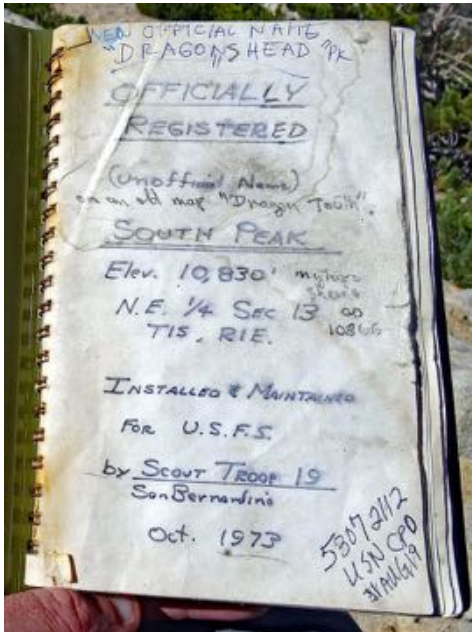 NEW OFFICIAL NAME
"DRAGONSHEAD" PK
OFFICIALLY
REGISTERED
(Unofficial Name)
on an old map "Dragon Tooth".
SOUTH PEAK
Elev. 10,830' my topo
N.E. 1/4 Sec 13
10866
T1S, R1E.
INSTALLED & MAINTAINED
FOR U.S.F.S.
by SCOUT TROOP 19
San Bernardino
Oct. 1973
53072112
USN CPO
31AUG19